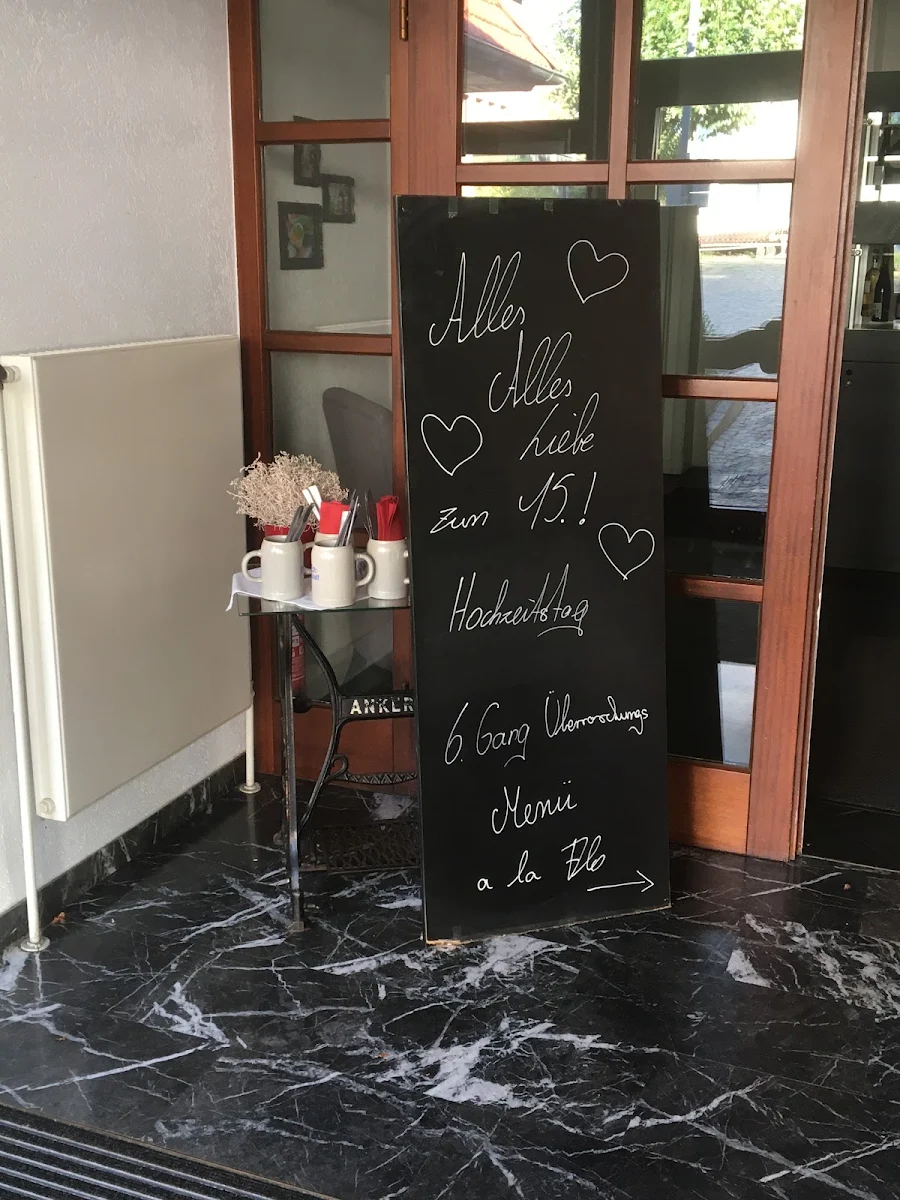 Alles
Alles
Liebe
zum 15.!
Hochzeitstag
6. Gang Überraschungs
Menü
a la
ANKER